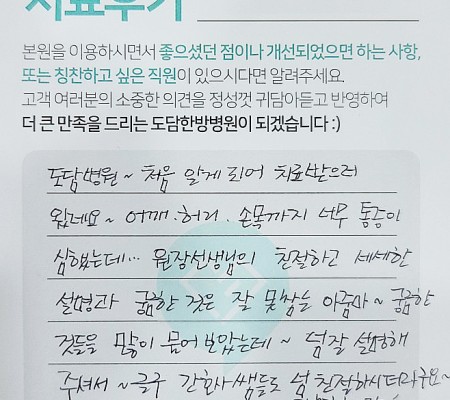 치료후기
본원을 이용하시면서 좋으셨던 점이나 개선되었으면 하는 사항,
또는 칭찬하고 싶은 직원이 있으시다면 알려주세요.
고객 여러분의 소중한 의견을 정성껏 귀담아듣고 반영하여
더 큰 만족을 드리는 도담한방병원이 되겠습니다 :)
도담병원~ 처음 알게 되어 치료받으러
왔네요~ 어깨.허리.손목까지 너무 통증이
심했는데... 원장선생님의 친절하고 세세한
설명과 궁금한 것은 잘 못참는 아줌마~ 궁금한
것들을 많이 물어 보았는데~ 넘 잘 설명해
주셔서~ 글구 간호사쌤들도 넘 친절하시더라구요~